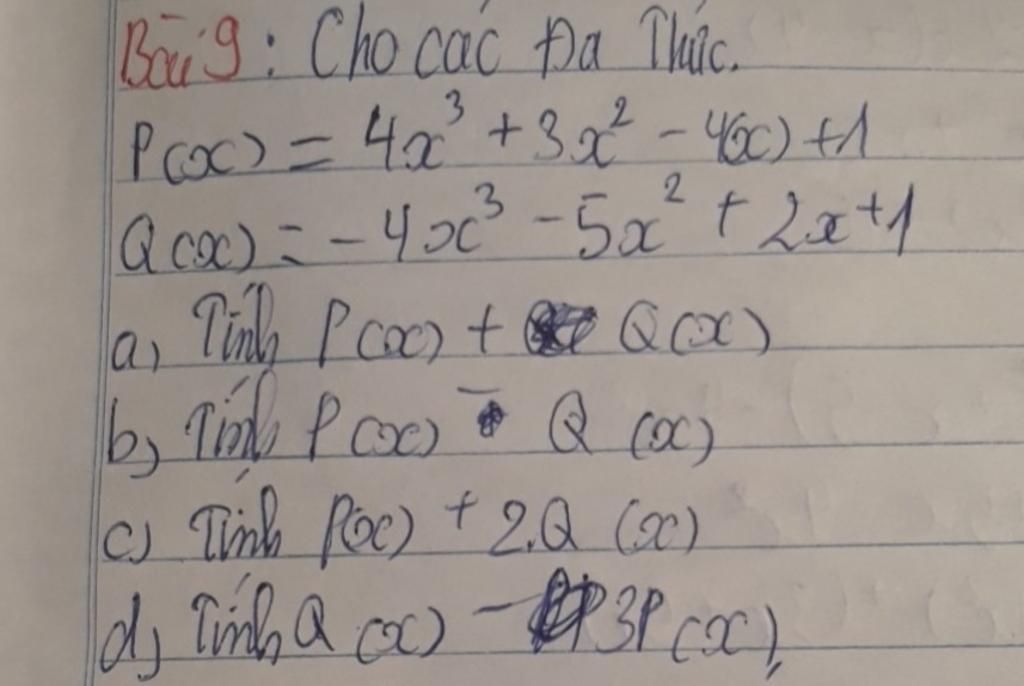 Bài 9: Cho các Đa Thức.
P(x) = 4x³ + 3x² - 4(x) + 1
Q(x) = -4x³ - 5x² + 2x + 1
a, Tính P(x) + Q(x)
b, Tính P(x) - Q (x)
c) Tính P(x) + 2.Q (x)
d, Tính Q (x) - 3P (x),